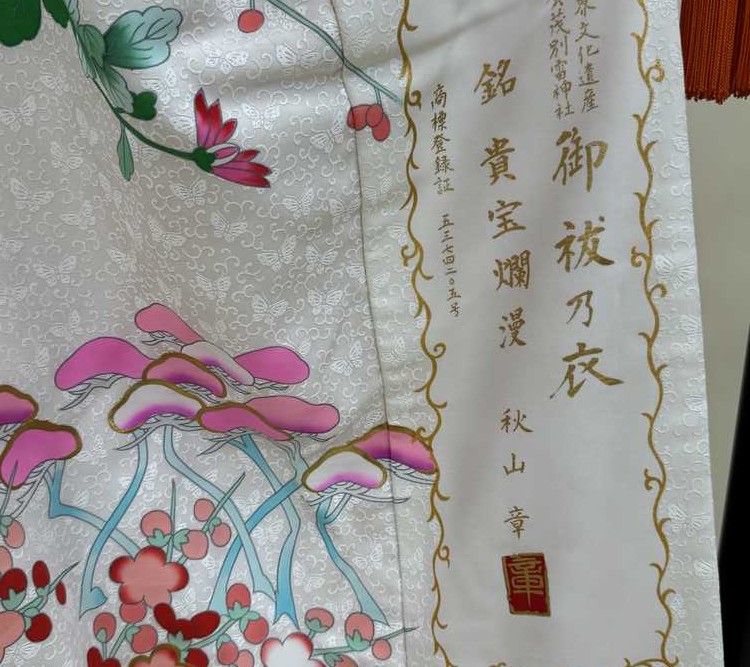 界文化遺産
茂別雷神社
御祓乃衣
銘 貴宝爛漫
秋山 章
章
商標登録証 五三七四二〇五号